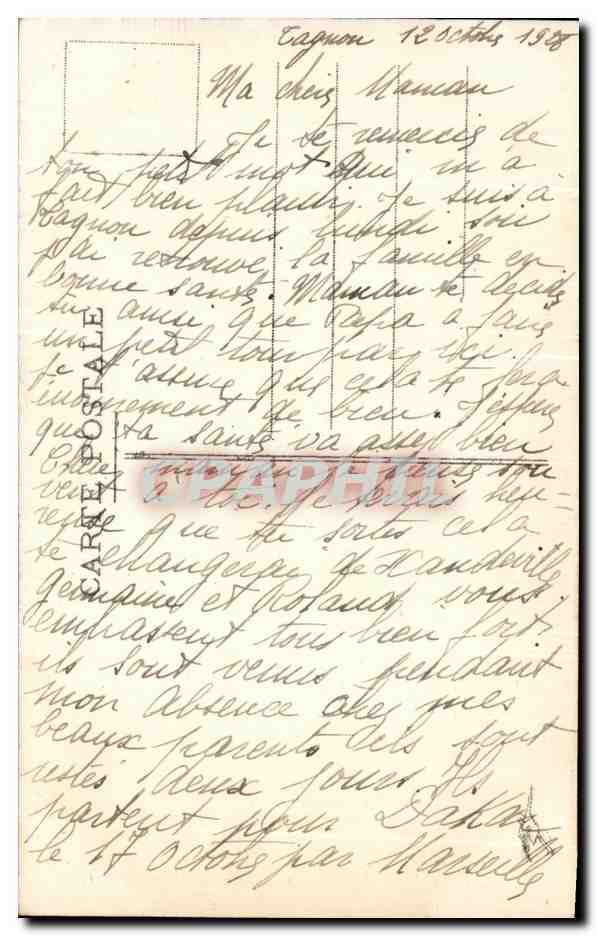 Tagnon 12 Octobre 1928
Ma chere Maman
Je te remercie de
ton petit mot qui m'a
fait bien plaisir. Je suis à
Tagnon depuis lundi soir
j'ai retrouvé la famille en
bonne santé. Maman te decides
tu ainsi que Papa a faire
un petit tour par ici.
je t'assure que cela te fera
inormement de bien. J'espere
que ta santé va assez bien
Chere je pense souvent
à toi. Je serais heu-
reuse que tu sortes cela
te changerai de Xandeville
Germaine et Roland vous
embrassent tous bien fort
ils sont venus pendant
mon absence chez mes
beaux parents ils sont
restés deux jours. Ils
partent pour Dakar
le 17 Octobre par Marseille
CARTE POSTALE
CPAPHIL